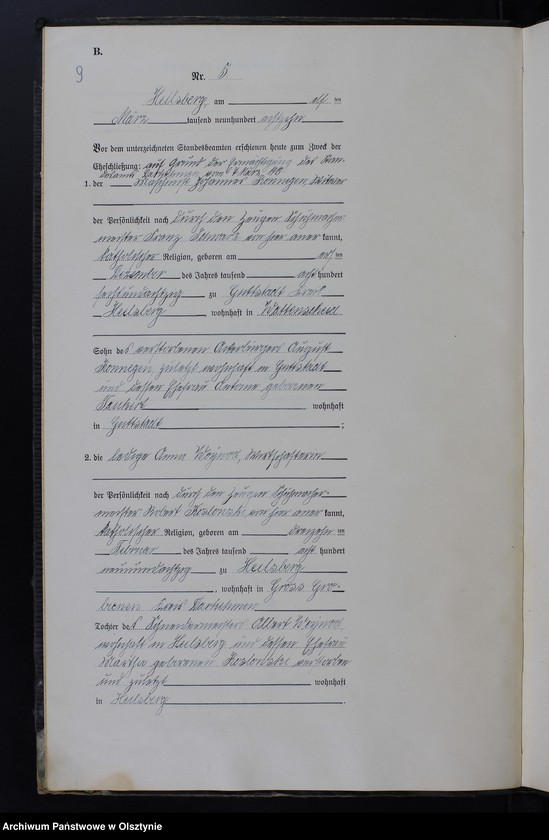 B.
9
Nr. 5
Heilsberg, am elf ten
März tausend neunhundert achtzehn
Vor dem unterzeichneten Standesbeamten erschienen heute zum Zweck der
Eheschließung: auf Grund der Ermächtigung des Stan-
desamts vom 4. März 18
1. der Maschinist Johannes Konnegen, Witwer
der Persönlichkeit nach durch den Zeugen Schuhmacher
meister Franz von hier aner kannt,
katholischer Religion, geboren am ten
Dezember des Jahres tausend acht hundert
sechsundachtzig zu Guttstadt Kreis
Heilsberg wohnhaft in Wattenscheid
Sohn des verstorbenen Ackerbürgers August
Konnegen, zuletzt wohnhaft in Guttstadt
und dessen Ehefrau geborenen
wohnhaft
in Guttstadt ;
2. die ledige Anna Woynod, Wirtschafterin
der Persönlichkeit nach durch den Zeugen Schuhmacher-
meister Robert Koslowski von hier aner kannt,
katholischer Religion, geboren am dreizehn ten
Februar des Jahres tausend acht hundert
neunundachtzig zu Heilsberg
, wohnhaft in Gross Gro-
bienen Kreis Darkehmen
Tochter des Schneidermeisters Albert Woynod
wohnhaft in Heilsberg und dessen Ehefrau
Martha geborenen Koslowski verstorben
und zuletzt wohnhaft
in Heilsberg .
Archiwum Państwowe w Olsztynie